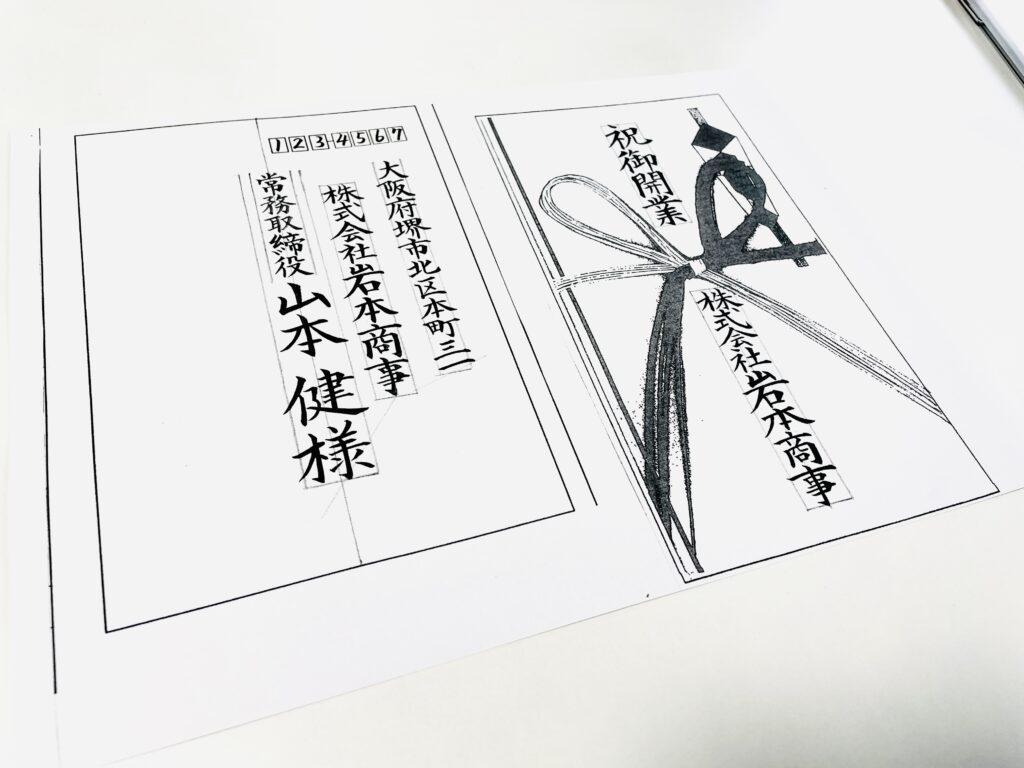 1234567
大阪府堺市北区本町三二
株式会社岩本商事
常務取締役 山本 健様
祝御開業
株式会社岩本商事